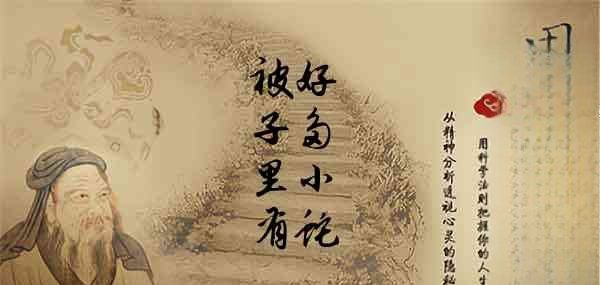 被子里有
好多小蛇
用科学法则把握你的人生
从精神分析透视心灵的隐秘